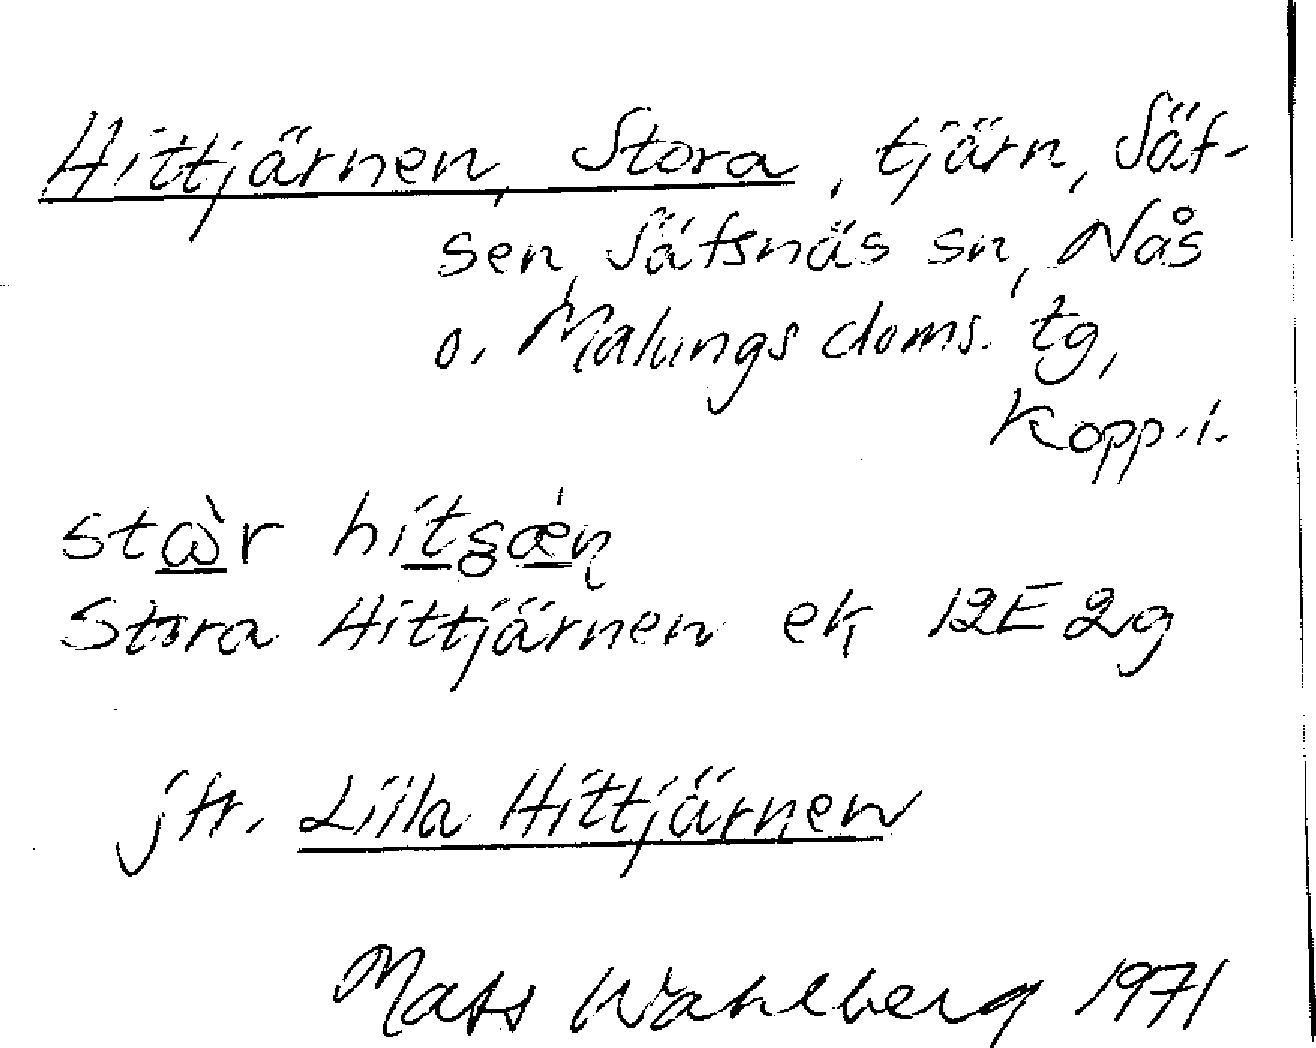 Hittjärnen, Stora, tjärn, Säf-
sen, Säfsnäs sn, Nås
o. Malungs doms. tg,
Kopp. l.
Stora Hittjärnen ek 12E2g
jfr. Lilla Hittjärnen
Mats Wahlberg 1971